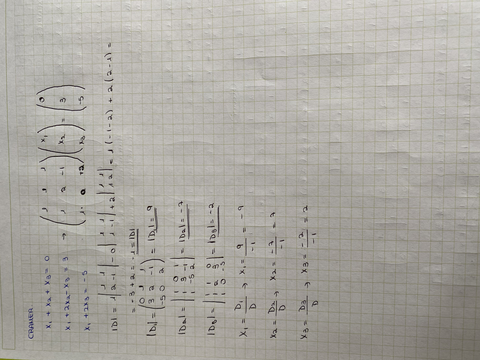 CRAMER
x₁ + x₂ + x₃ = 0
x₁ + 2x₂ - x₃ = 3 → (1 1 1; 1 2 -1; 1 0 2) (x₁; x₂; x₃) = (0; 3; -5)
x₁ + 2x₃ = -5
|D| = 1 |2 -1| - 0 |1 1; 1 -1| + 2 |1 1; 1 2| = 1(-1-2) + 2(2-1) =
= -3 + 2 = -1 = |D|
|D₁| = (0 1 1; 3 2 -1; -5 0 2) = |D₁| = 9
|D₂| = |1 0 1; 1 3 -1; 1 -5 2| = |D₂| = -7
|D₃| = |1 1 0; 1 2 3; 1 0 -5| = |D₃| = -2
x₁ = D₁/D → x₁ = 9/-1 = -9
x₂ = D₂/D → x₂ = -7/-1 = 7
x₃ = D₃/D → x₃ = -2/-1 = 2